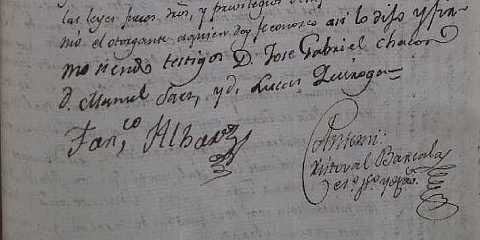 las leyes fueros, dros, y privilegios
mó el otorgante aquien doy fe conosco asi lo dijo y fir-
mo siendo testigos D. Jose Gabriel chacon
D. Manuel Saes, y D. Lucas Quiroga=
Fran,co Albarz
Antemi
Xistoval Barcala